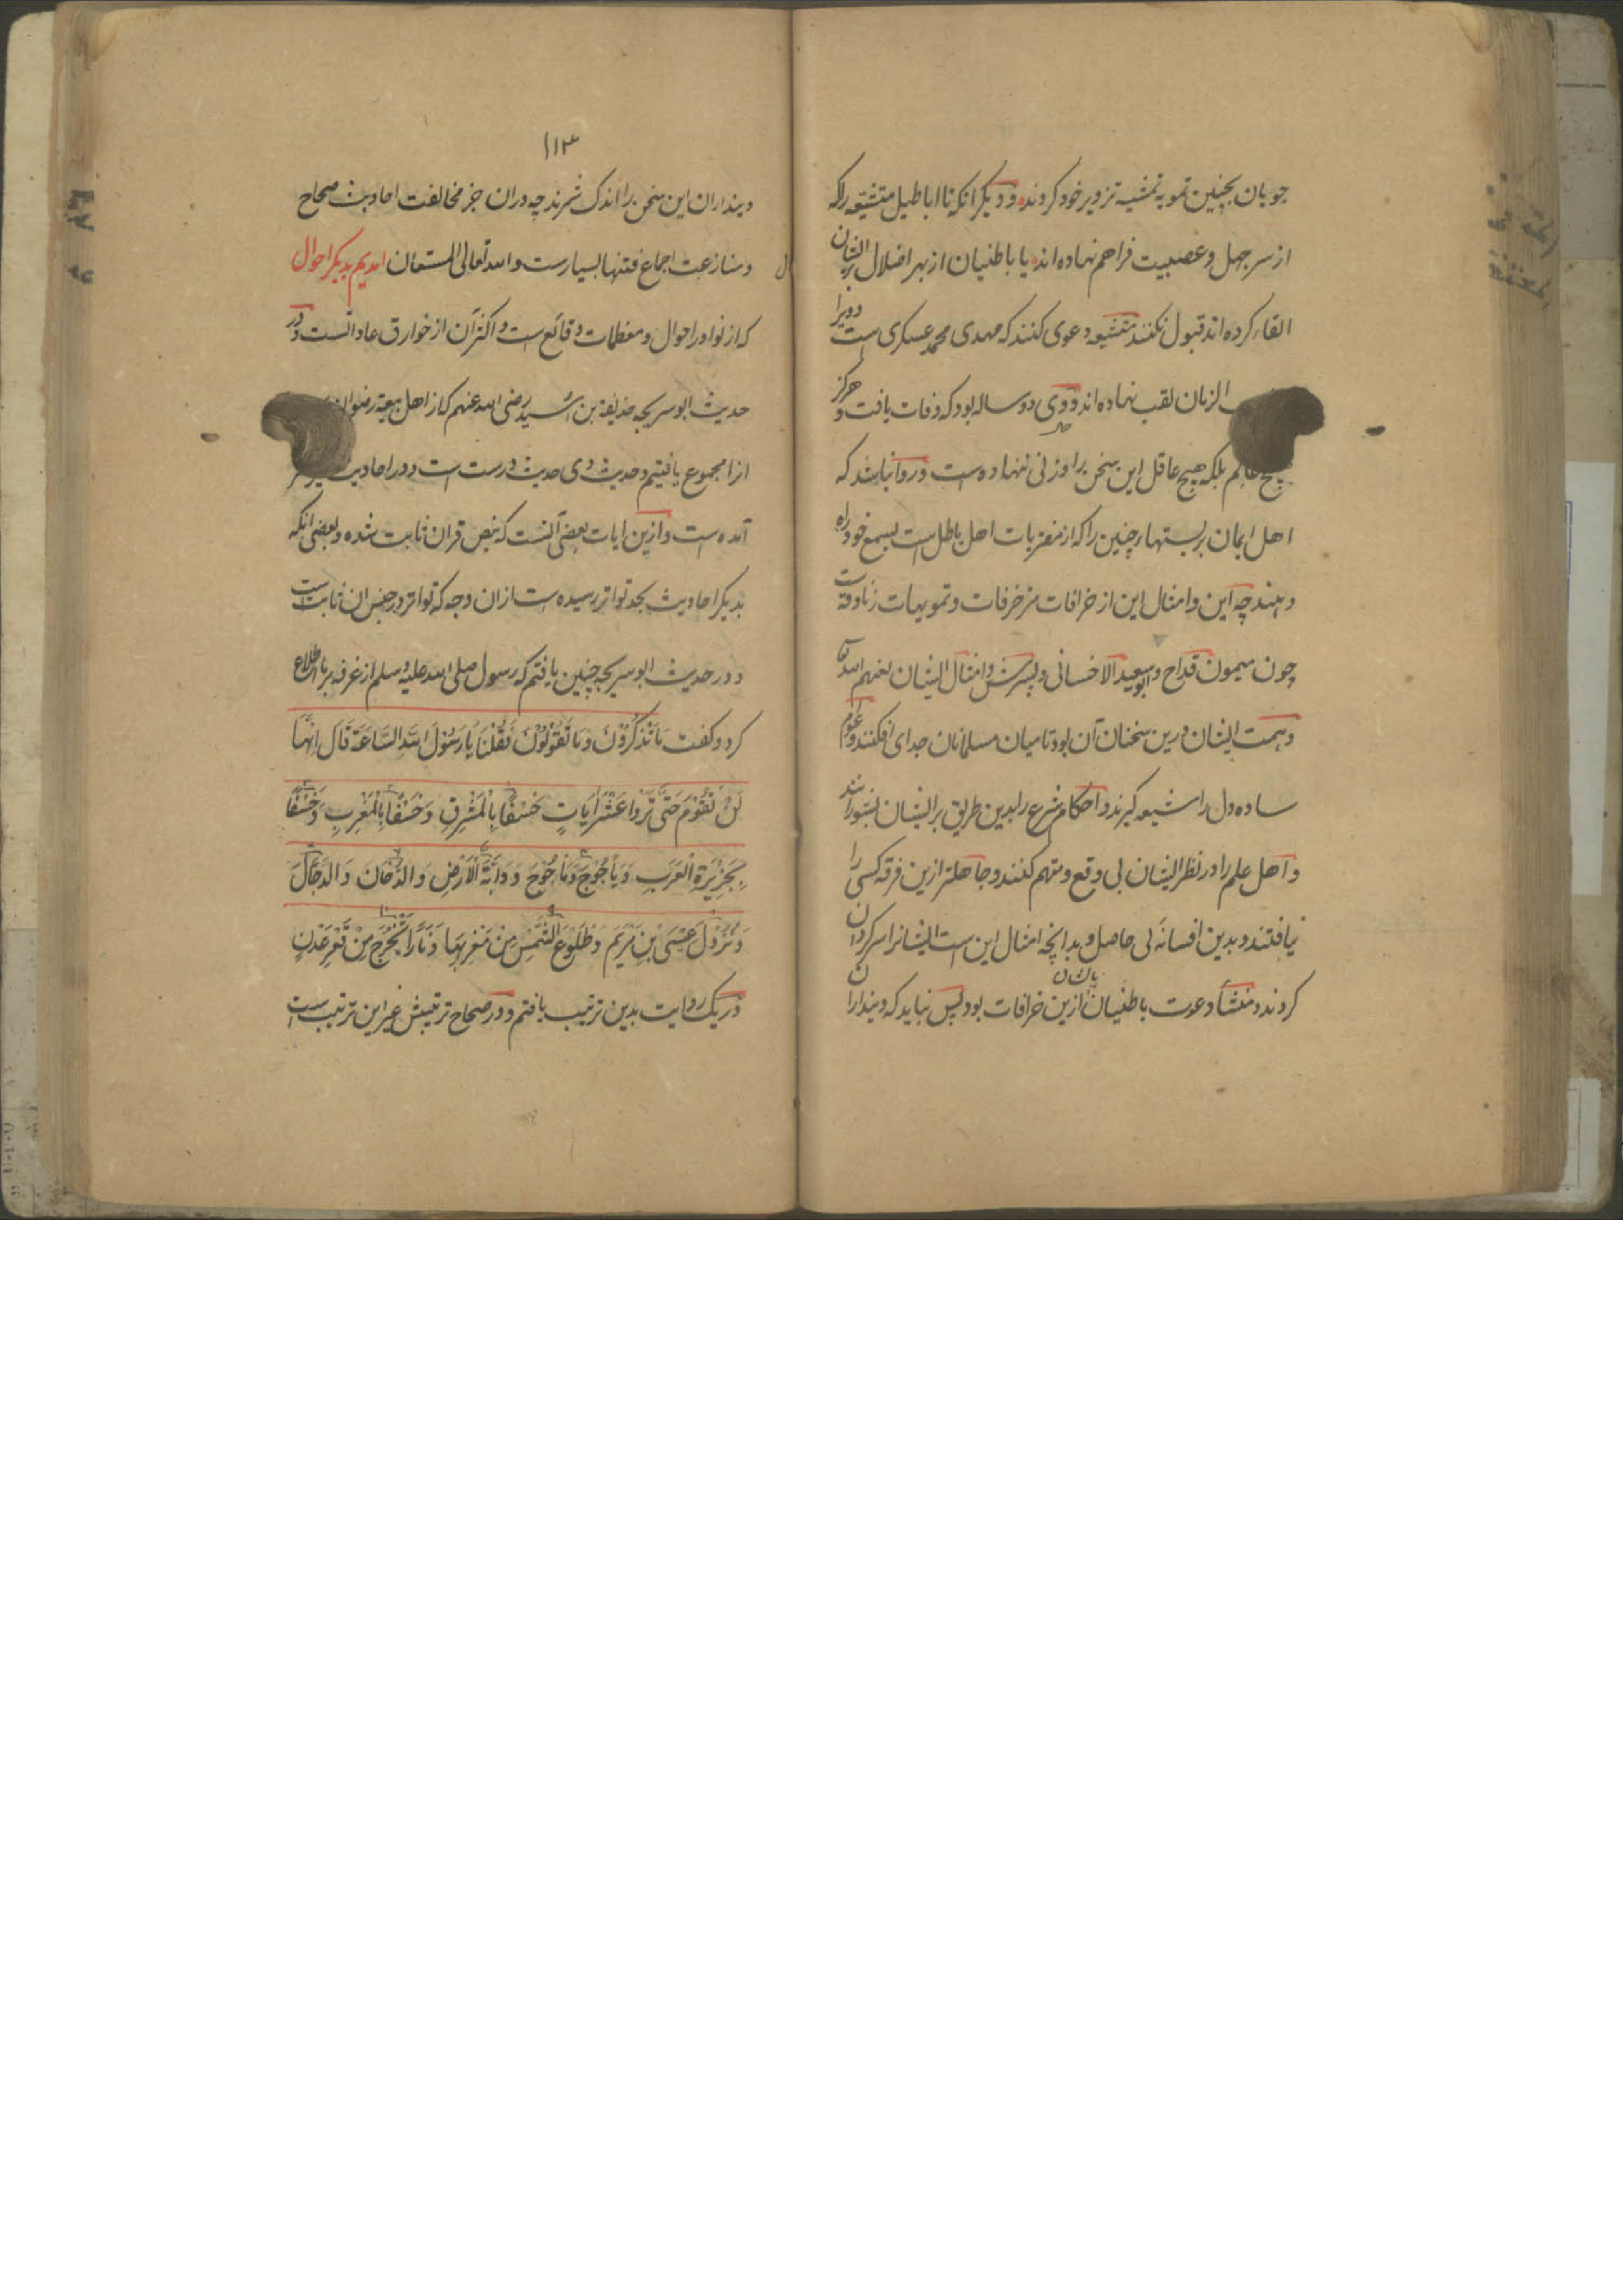 جویان بچنین تمویه تمشیه تزویر خود کردند و دیکر انکه تا اباطیل متشیعه را که
از سر جهل و عصبیت فراهم نهاده اند یا باطنیان از بهر اضلال ایشان بریشان
القاء کرده اند قبول نکنند متشیعه دعوی کنند که مهدی محمد عسکری است و ویرا
الزمان لقب نهاده اند و وی دو ساله بود که وفات یافت و هرکز
هیچ عالم بلکه هیچ عاقل این سخن را وزنی ننهاده است و روا نباشد که
اهل ایمان بر بستهار چنین را که از مفتریات اهل باطل است بسمع خود راه
دهند چه این و امثال این از خرافات مزخرفات و تمویهات زنادقه است
چون میمون قداح و ابو سعید الاخسائی و پسرش و امثال ایشان لعنهم الله تعا
و همت ایشان درین سخنان آن بود تا میان مسلمانان جدای افکنند و عوام
ساده دل را شیعه کیرند و احکام شرع را بدین طریق بر ایشان بشورانند
و اهل علم را در نظر ایشان بی وقع و متهم کنند و جاهلتر ازین فرقه کسی را
نیافتند و بدین افسانه بی حاصل و بدانچه امثال این است ایشانرا سرکردان
کردند و منشأ دعوت باطنیان ازین خرافات بود پس نباید که دیندارا ن
۱۱۳
دینداران این سخن را اندک شمرند چه دران جز مخالفت احادیث صحاح
و منازعت اجماع فتنها بسیارست و الله تعالی المستعان امدیم بدیکر احوال
که از نوادر احوال و معظمات وقائع است و اکثر آن از خوارق عاداتست و در
حدیث ابو سریحه حذیفة بن اسید رضی الله عنهم که از اهل بیعة رضوان
انرا مجموع یافتیم و حدیث وی حدیث درست است و در احادیث
آمده است و ازین ایات بعضی آنست که بنص قران ثابت شده و بعضی انکه
بدیکر احادیث بحد تواتر رسیده است ازان وجه که تواتر در جنس ان ثابت است
و در حدیث ابو سریحه چنین یافتم که رسول صلی الله علیه و سلم از غرفه بر ما اطلاع
کرد و کفت مَا تَذْكُرُوْنَ وَمَا تَقُوْلُوْنَ فَقُلْنَا يَا رَسُوْلَ اللهِ السَّاعَةَ قَالَ اِنَّهَا
لَنْ تَقُوْمَ حَتّٰى تَرَوْا عَشْرَ اٰيَاتٍ خَسْفًا بِالْمَشْرِقِ وَخَسْفًا بِالْمَغْرِبِ وَخَسْفًا
بِجَزِيْرَةِ الْعَرَبِ وَيَأْجُوْجَ وَمَأْجُوْجَ وَدَابَّةَ الْاَرْضِ وَالدُّخَانَ وَالدَّجَّالَ
وَنُزُوْلَ عِيْسَى بْنِ مَرْيَمَ وَطُلُوْعَ الشَّمْسِ مِنْ مَغْرِبِهَا وَنَارًا تَخْرُجُ مِنْ قَعْرِ عَدَنٍ
در یک روایت بدین ترتیب یافتم و در صحاح ترتیبش غیر این ترتیب است